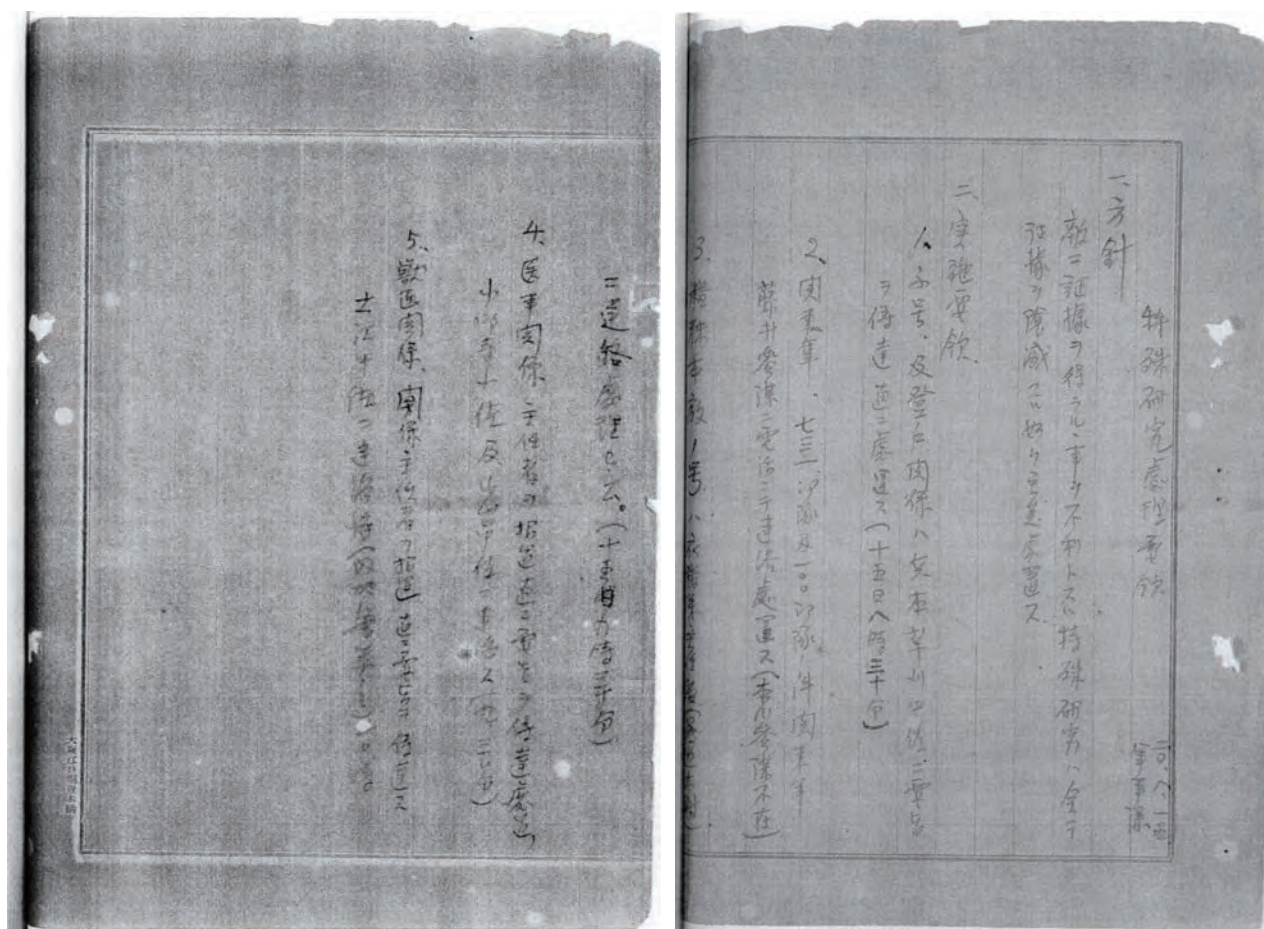 特殊研究處理要領
二〇、八、一五
軍事課
一、方針
敵ニ証據ヲ得ラルヽ事ヲ不利トスル特殊研究ハ全テ
証據ヲ隠滅スル如ク至急處置ス
二、実施要領
1、ふ号、及登戸関係ハ兵本草刈中佐ニ要旨
ヲ傳達直ニ處置ス(十五日八時三十分)
2、関東軍、七三一部隊及一〇〇部隊ノ件関東軍
藤井参謀ニ電話ニテ連絡處置ス(本川参謀不在)
3、糧秣本廠1号ハ衣糧課主任者
ニ連絡處理セシム。(十五日九時三十分)
4、医事関係主任者ヲ招置直ニ要旨ヲ傳達處置
小野寺少佐及 中佐ニ連絡ス(九、三〇分)
5、獣医関係、関係主任者ヲ招置直ニ要旨ヲ傳達ス
出江中佐ニ連絡済(内地 )一〇時。